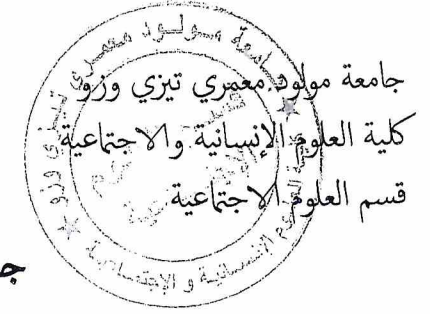 جامعة مولود معمري تيزي وزو
كلية العلوم الإنسانية والاجتماعية
قسم العلوم الاجتماعية
جامعة مولود معمري تيزي وزو
الإنسانية و الإجتماعية